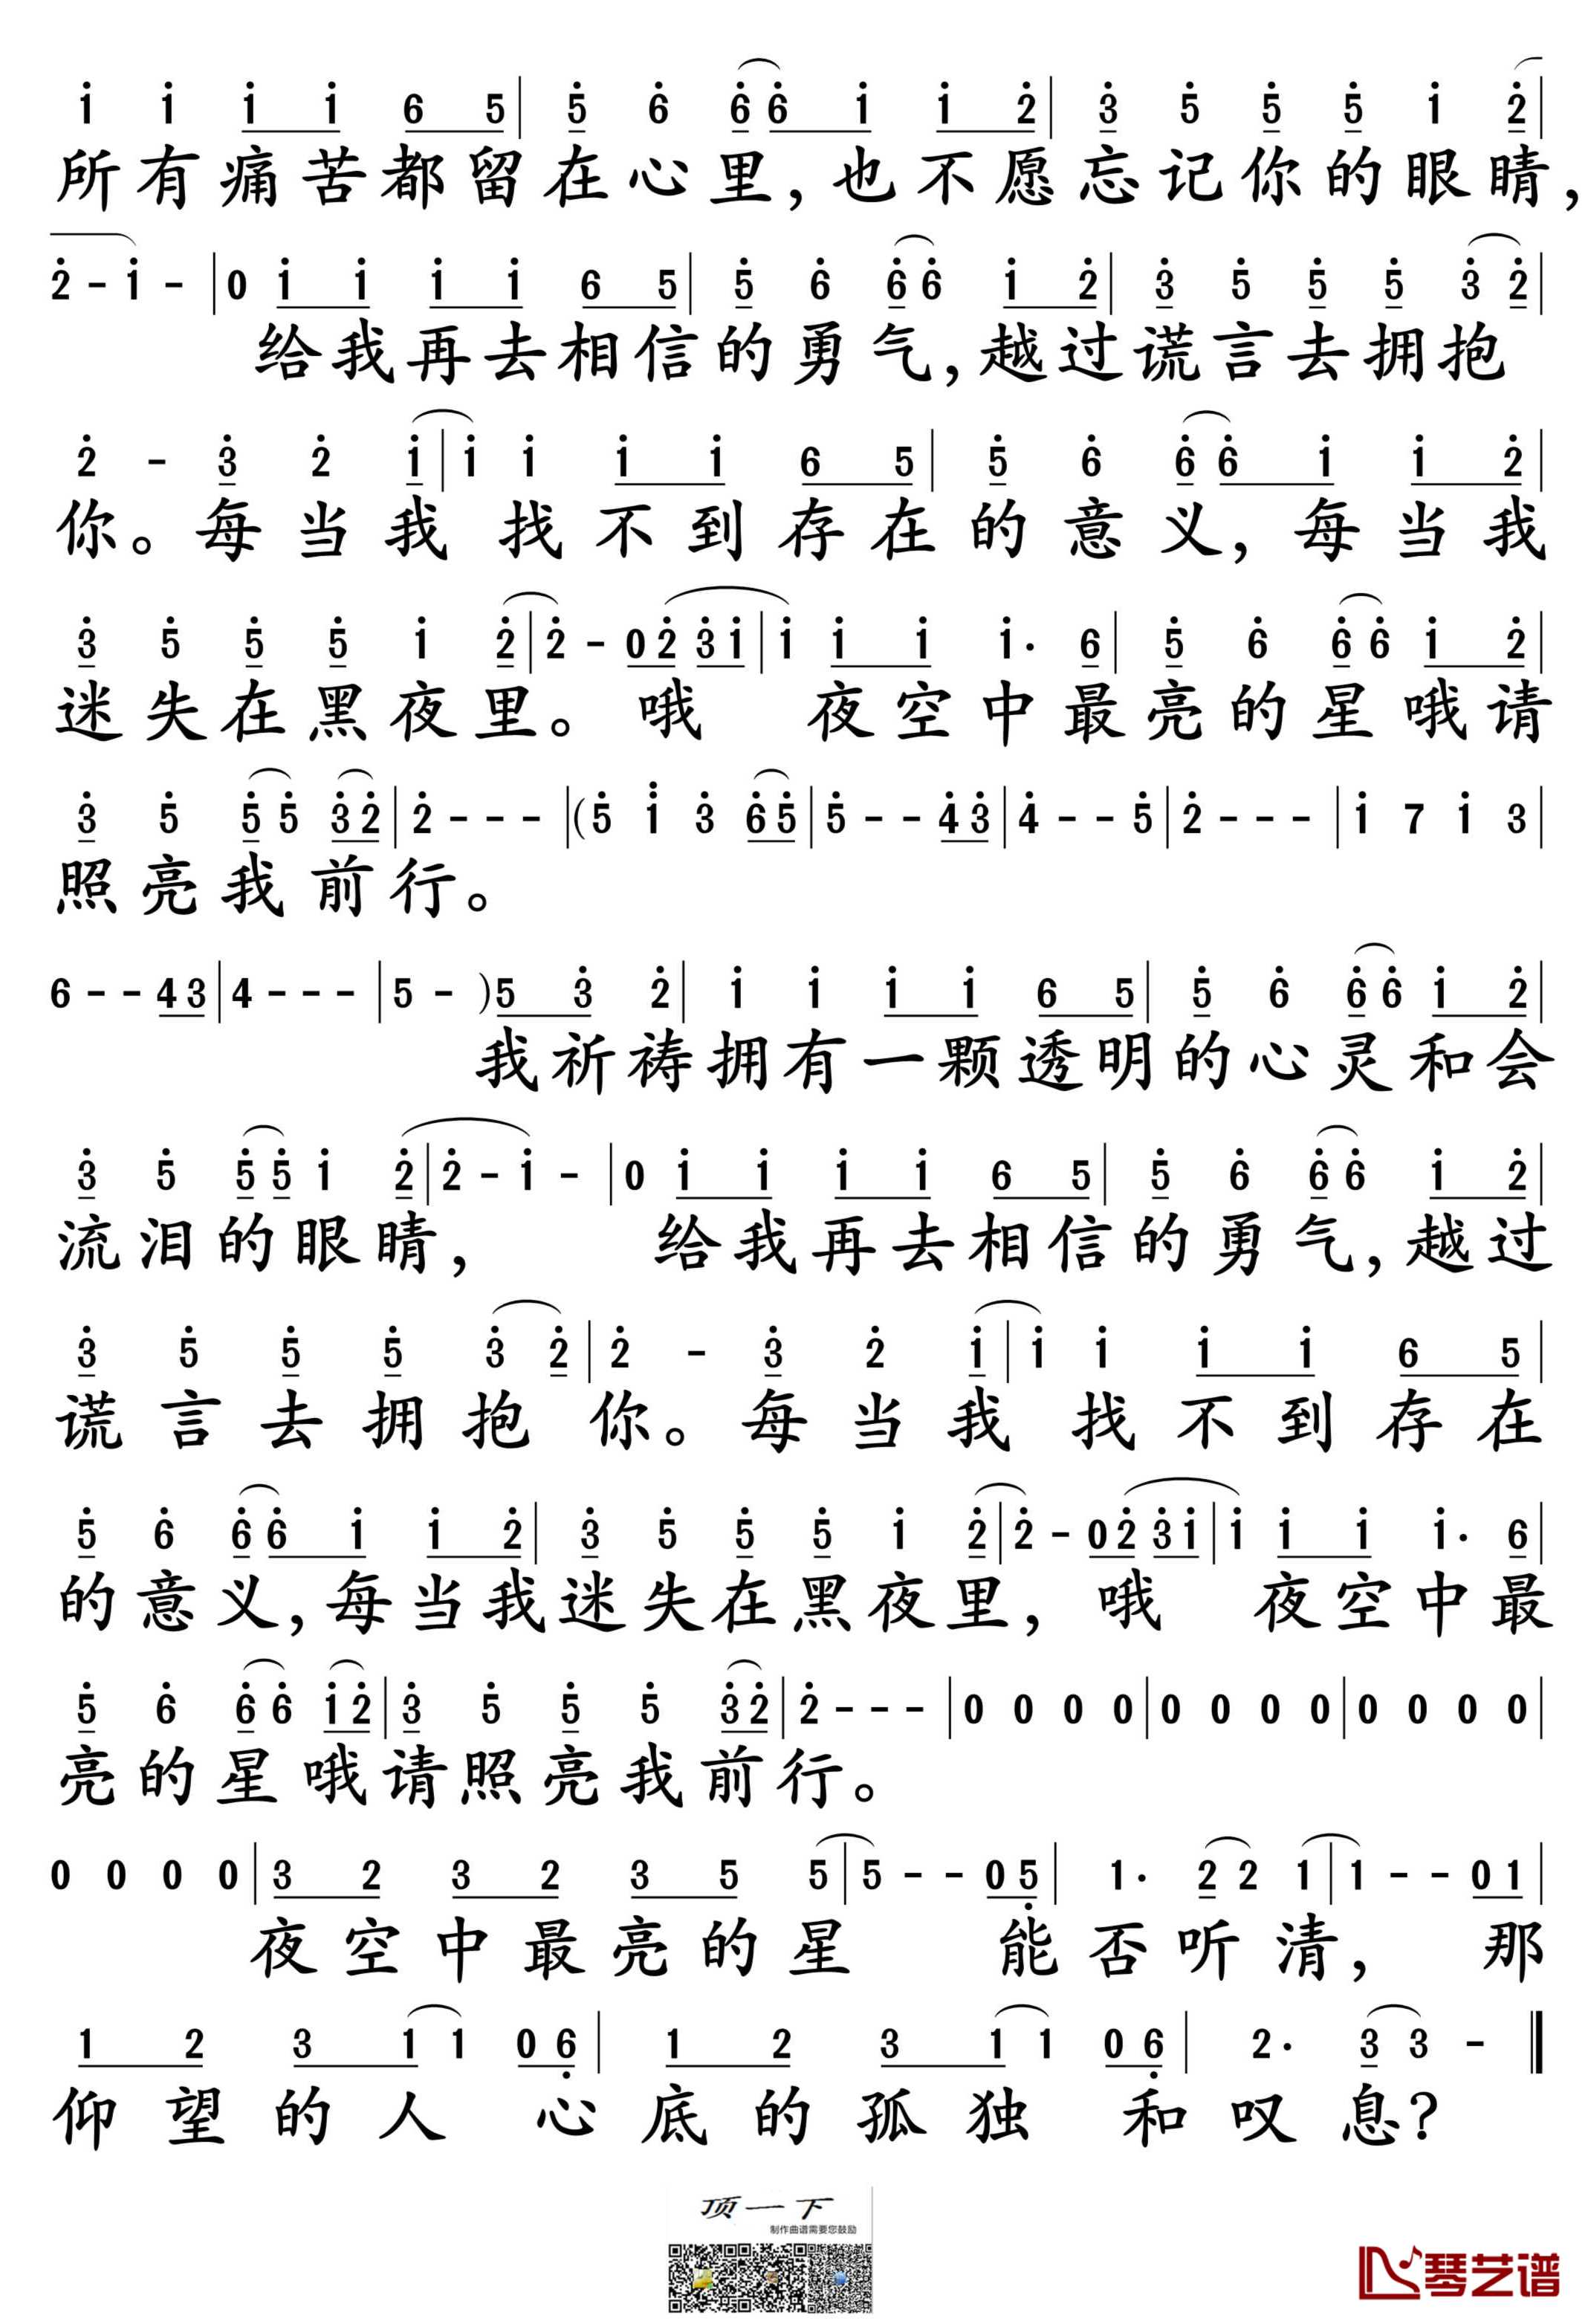 1 1 1 1 6 5 | 5 6 6 6 1 1 2 | 3 5 5 5 1 2 |
所有痛苦都留在心里,也不愿忘记你的眼睛,
2 - 1 - | 0 1 1 1 1 6 5 | 5 6 6 6 1 2 | 3 5 5 5 3 2 |
给我再去相信的勇气,越过谎言去拥抱
2 - 3 2 1 | 1 1 1 1 6 5 | 5 6 6 6 1 1 2 |
你。每当我找不到存在的意义,每当我
3 5 5 5 1 2 | 2 - 0 2 3 1 | 1 1 1 1· 6 | 5 6 6 6 1 2 |
迷失在黑夜里。哦 夜空中最亮的星哦请
3 5 5 5 3 2 | 2 - - - | (5 1 3 6 5 | 5 - - 4 3 | 4 - - 5 | 2 - - - | 1 7 1 3 |
照亮我前行。
6 - - 4 3 | 4 - - - | 5 - ) 5 3 2 | 1 1 1 1 6 5 | 5 6 6 6 1 2 |
我祈祷拥有一颗透明的心灵和会
3 5 5 5 1 2 | 2 - 1 - | 0 1 1 1 1 6 5 | 5 6 6 6 1 2 |
流泪的眼睛, 给我再去相信的勇气,越过
3 5 5 5 3 2 | 2 - 3 2 1 | 1 1 1 1 6 5 |
谎言去拥抱你。每当我找不到存在
5 6 6 6 1 1 2 | 3 5 5 5 1 2 | 2 - 0 2 3 1 | 1 1 1 1· 6 |
的意义,每当我迷失在黑夜里,哦 夜空中最
5 6 6 6 1 2 | 3 5 5 5 3 2 | 2 - - - | 0 0 0 0 | 0 0 0 0 | 0 0 0 0 |
亮的星哦请照亮我前行。
0 0 0 0 | 3 2 3 2 3 5 5 | 5 - - 0 5 | 1· 2 2 1 | 1 - - 0 1 |
夜空中最亮的星 能否听清, 那
1 2 3 1 1 0 6 | 1 2 3 1 1 0 6 | 2· 3 3 - ‖
仰望的人 心底的孤独 和叹息?
顶一下
制作曲谱需要您鼓励
琴艺谱